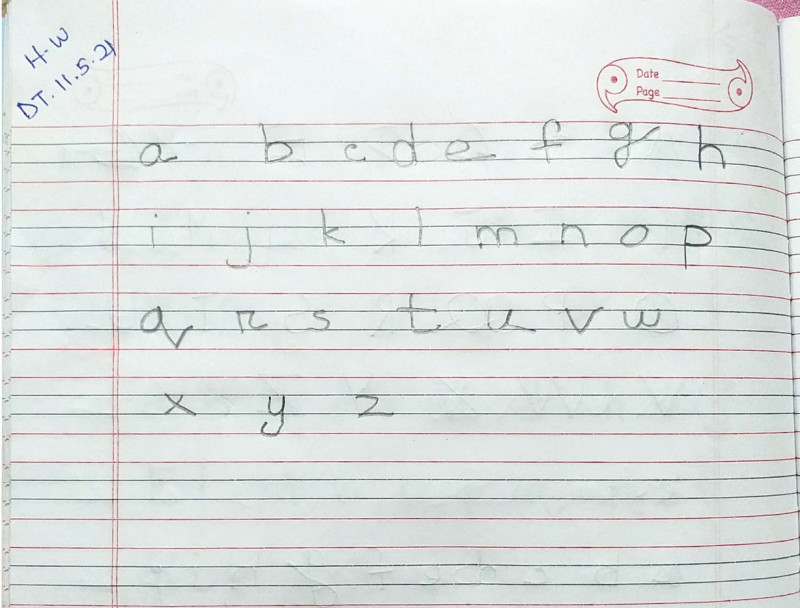 H.W
DT. 11.5.21
Date
Page
a b c d e f g h
i j k l m n o p
q r s t u v w
x y z